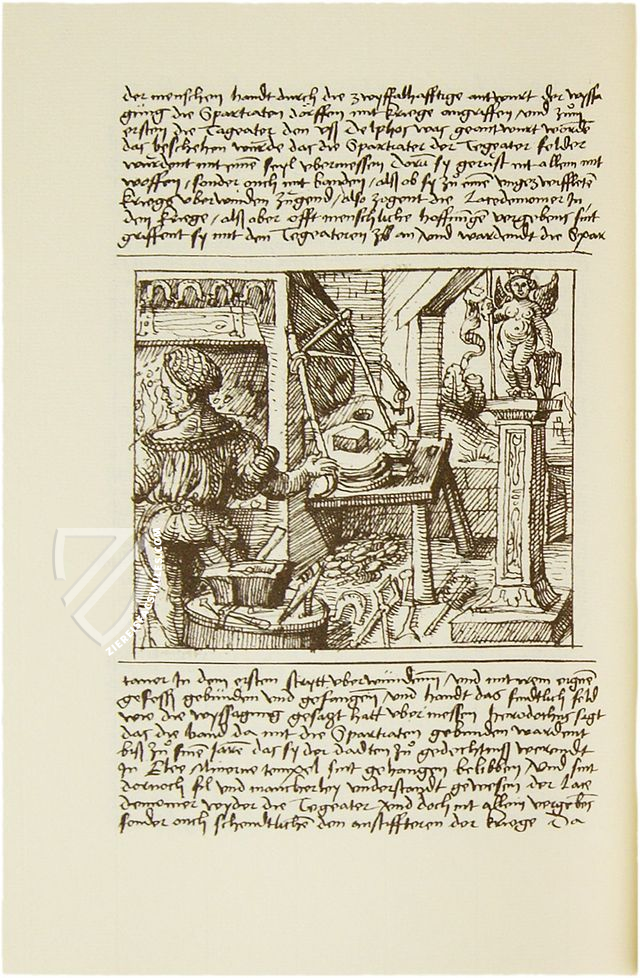 der menschen handt durch die zwyffalhafftige antwurt der wyssa
gung die Spartiaten dorffen mit kriege angriffen und zum
ersten die Tageater den uss Delphos was geantwurt worden
das beschehen wurde das die Spartiater der Tegeater felder
wurdent mit einem seyl vbermessen dorū sy gerüst nit allein mit
woffen / sonder ouch mit banden / als ob sy zu einem ungezwiffleten
kriege vberwinden zugend / also zogent die Lacedemonier in
den kriege / als aber offt menschliche hoffnungen vergebens sint
griffent sy mit den Tegeateren an und wardendt die Spar
taner In dem ersten strytt vberwunden / und mit irem eignen
gebunden und gefangen / und handt das findtlich feld
wie die wyssagung gesagt hatt vbermessen Herodothus sagt
das die band da mit die Spartiaten gebunden wardent
biss zu sinen jaren das sy der dadten zu gedechtniss
In Minerve tempel sint gehangen belibben / und sint
dornoch fil und mancherley understandt gewesen der Lace
demonier wyder die Tegeater doch nit allein vergebens
sonder ouch schendtlichen den anstiffteren der kriege Da
ZIEREIS FACSIMILES.COM